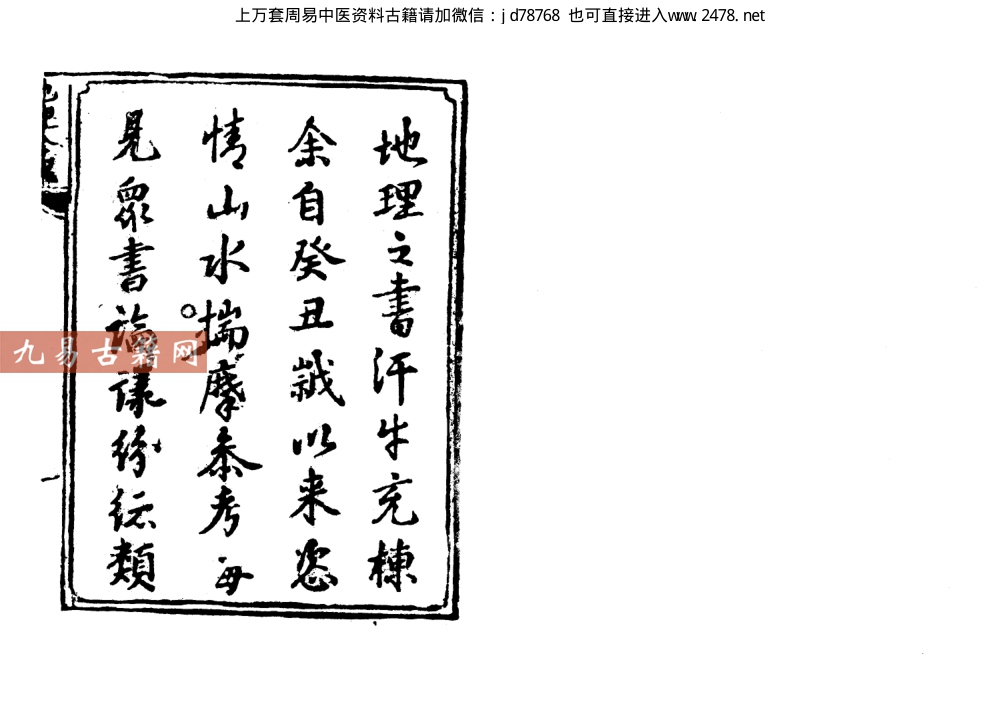 上万套周易中医资料古籍请加微信：jd78768 也可直接进入www.2478.net
地理之書汗牛充棟
余自癸丑歲以来恣
情山水揣摩叅考每
見眾書論議紛紜類
九易古籍网